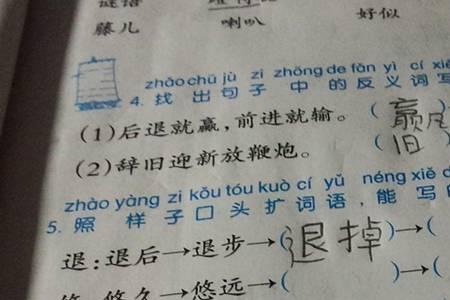 谜语
藤儿 喇叭 好似
zhǎo chū jù zi zhōng de fǎn yì cí xiě
4. 找出句子中的反义词写
(1)后退就赢,前进就输。(赢
(2)辞旧迎新放鞭炮。(旧
zhào yàng zi kǒu tóu kuò cí yǔ néng xiě d
5. 照样子口头扩词语,能写
退:退后→退步→(退掉)→(
悠久→悠远→( )→(